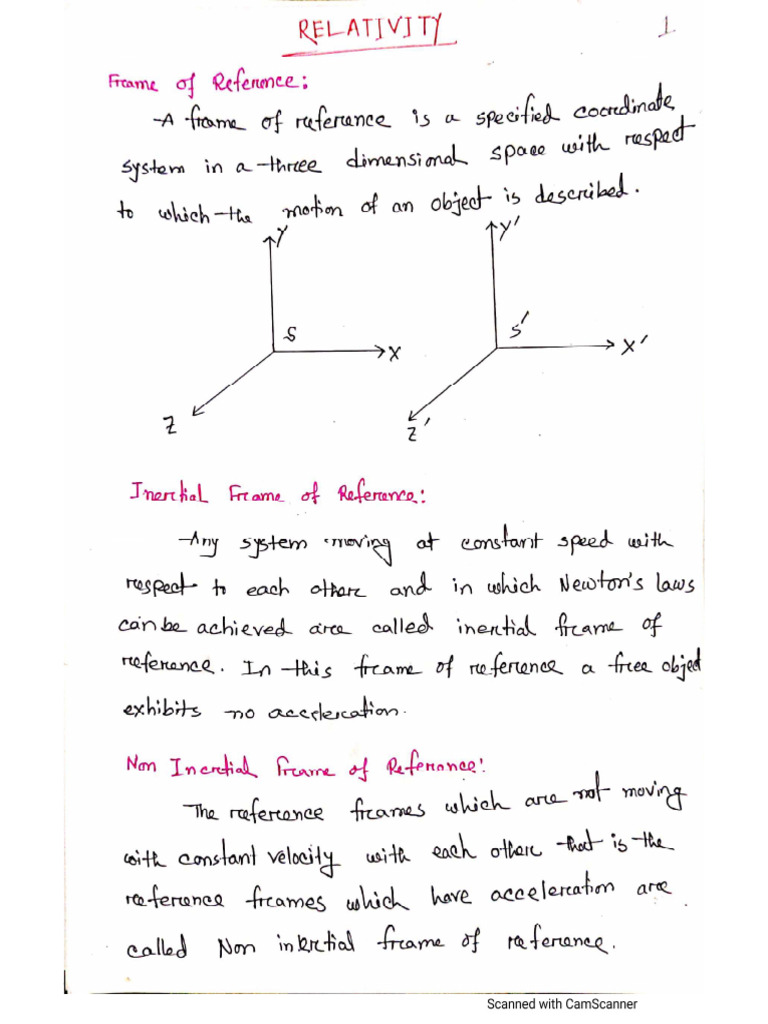 RELATIVITY
1
Frame of Reference:
A frame of reference is a specified coordinate
system in a three dimensional space with respect
to which the motion of an object is described.
Y
Y'
S
S'
X
X'
Z
Z'
Inertial Frame of Reference:
Any system moving at constant speed with
respect to each other and in which Newton's laws
can be achieved are called inertial frame of
reference. In this frame of reference a free object
exhibits no acceleration.
Non Inertial Frame of Reference:
The reference frames which are not moving
with constant velocity with each other that is the
reference frames which have acceleration are
called Non inertial frame of reference.
Scanned with CamScanner